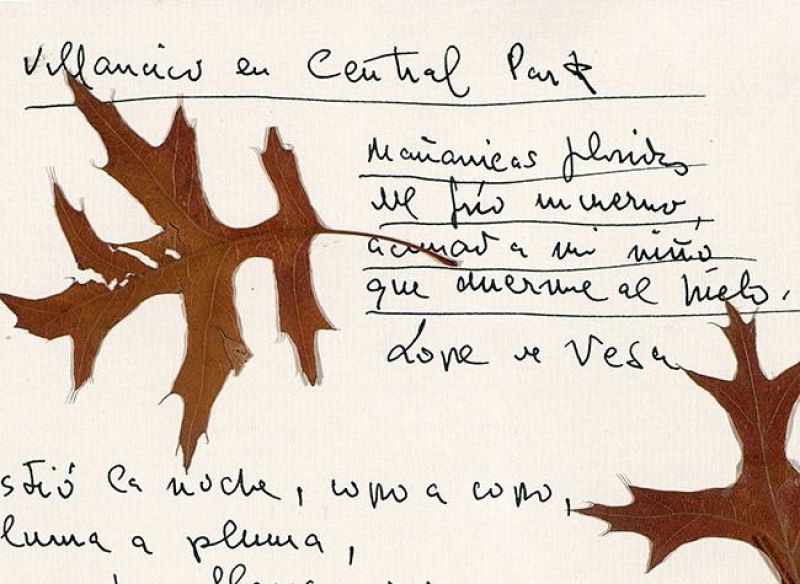 Villancico en Central Park
Mañanicas floridas
del frío invierno,
acunad a mi niño
que duerme al hielo.
Lope de Vega
stió la noche, copo a copo,
luma a pluma,